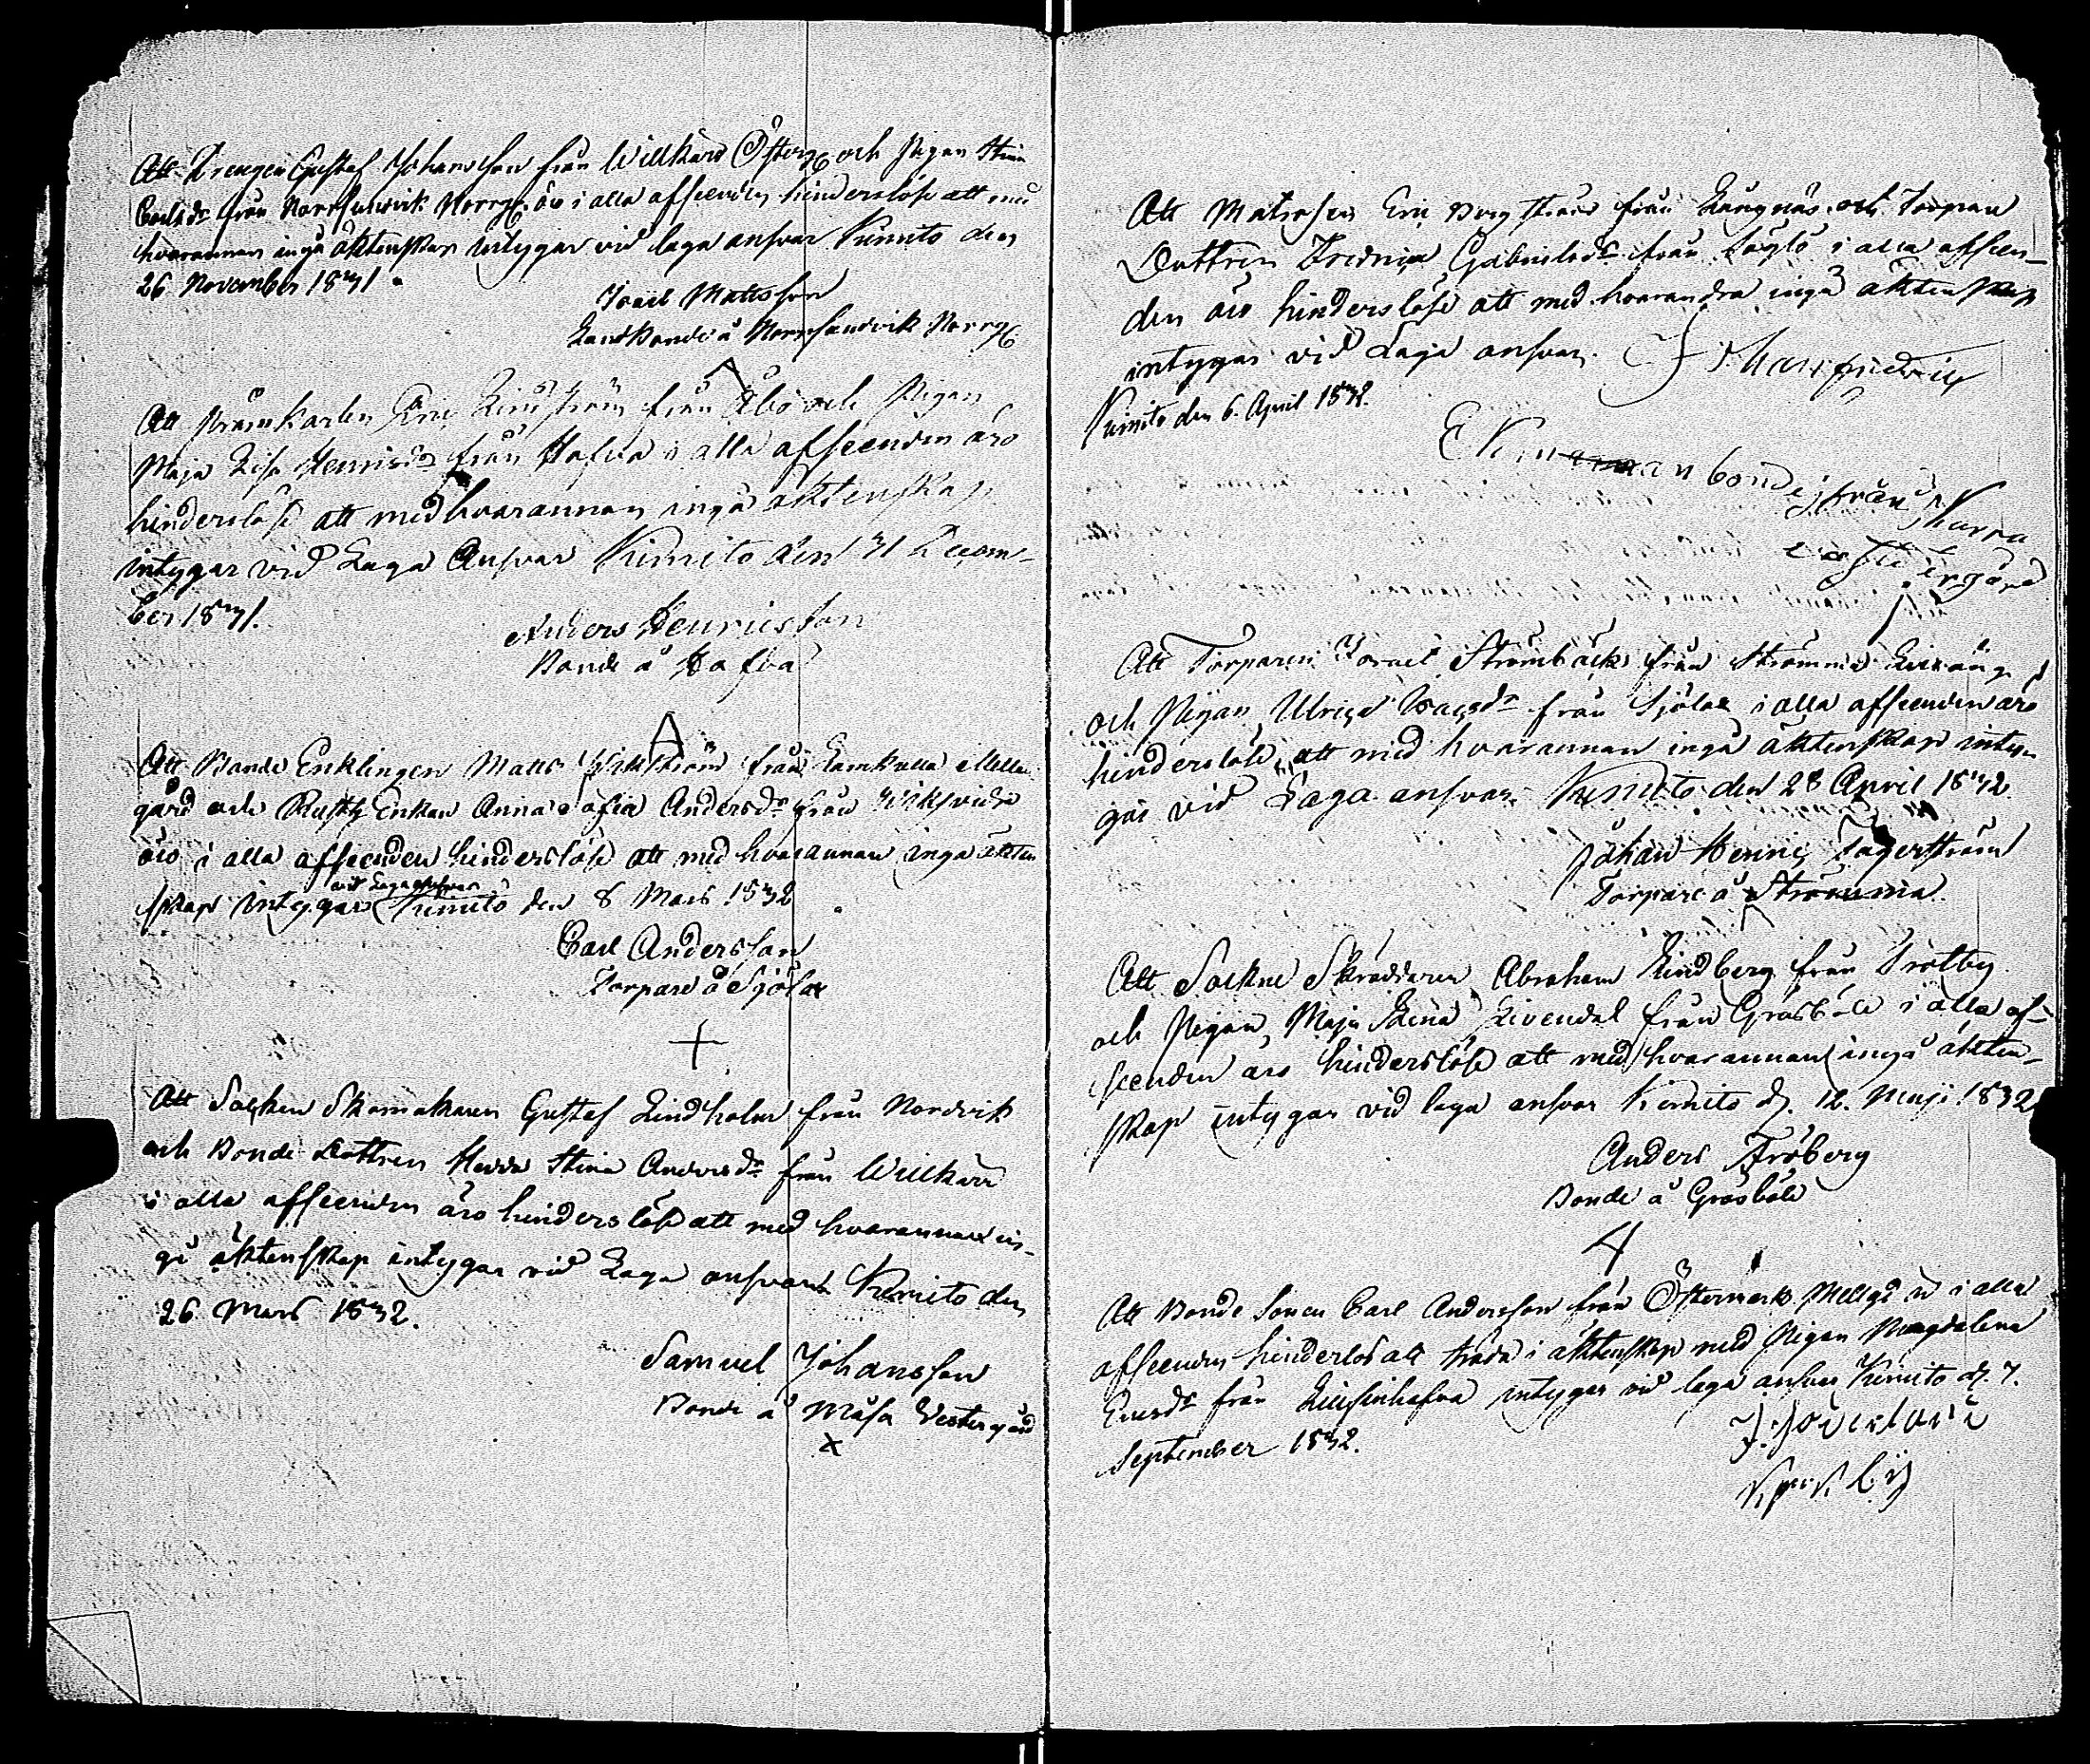 Att Drengen Gustaf Johansson från Willkärr Österg och Pigan Stina
Carlsdr från Norrsundvik Norrg. äro i alla afseenden hinderslöse att med
hvarannan ingå äktenskap intygar vid laga ansvar Kimito den
26 November 1831.
Isaak Mattsson
Landbonde å Norrsundvik Norrg
Att Pråmkarlen Eric Lindström från Åbo och Pigan
Maja Lisa Henricsdr från Hafva i alla afseenden äro
hinderslöse att med hvarannan ingå äktenskap
intygar vid Laga Ansvar Kimito den 31 Decem-
ber 1831.
Anders Henricsson
Bonde å Hafva
Att Bonde Enklingen Matts Wikström från Lamkulla Mellan
gård och Rusth Enkan Anna Sofia Andersdr från Wiksvidja
äro i alla afseenden hinderslöse att med hvarannan ingå äkten
skap intygar vid Laga ansvar Kimito den 8 Mars 1832
Carl Andersson
Torpare å Sjölax
Att Socken Skomakaren Gustaf Lindholm från Nordvik
och Bonde Dottren Hedda Stina Andersdr från Willkärr
i alla afseenden äro hinderslöse att med hvarannan in-
gå äktenskap intygar vid Laga ansvar Kimito den
26 Mars 1832.
Samuel Johansson
Bonde å Måsa Westergård
x
Att Matrosen Eric Bergström från Långnäs och Torpare
Dottren Fredrica Gabrielsdr från Löglö i alla afseen-
den äro hinderslöse att med hvarandra ingå äktenskap
intygar vid Laga ansvar.
Kimito den 6. April 1832.
Johan Fredric
Ekman bonde från
Att Torparen Israel Strömbäck från Strömma
och Pigan Ulrica Isacsdr från Sjölax i alla afseenden äro
hinderslöse att med hvarannan ingå äktenskap inty-
gar vid Laga ansvar Kimito den 28 April 1832
Johan Henric Fagerström
Torpare å Strömma
Att Sockne Skräddaren Abraham Lindberg från Trotby
och Pigan Maja Lena Livendal från Gräsböle i alla af-
seenden äro hinderslöse att med hvarannan ingå äkten-
skap intygar vid laga ansvar Kimito d. 12. Maji 1832
Anders Fröberg
Bonde å Gräsböle
Att Bonde Sonen Carl Andersson från Östermark Mellgd är i alla
afseenden hinderlös att träda i äktenskap med Pigan Magdalena
Ericsdr från intygar vid laga ansvar Kimito d. 7.
September 1832.